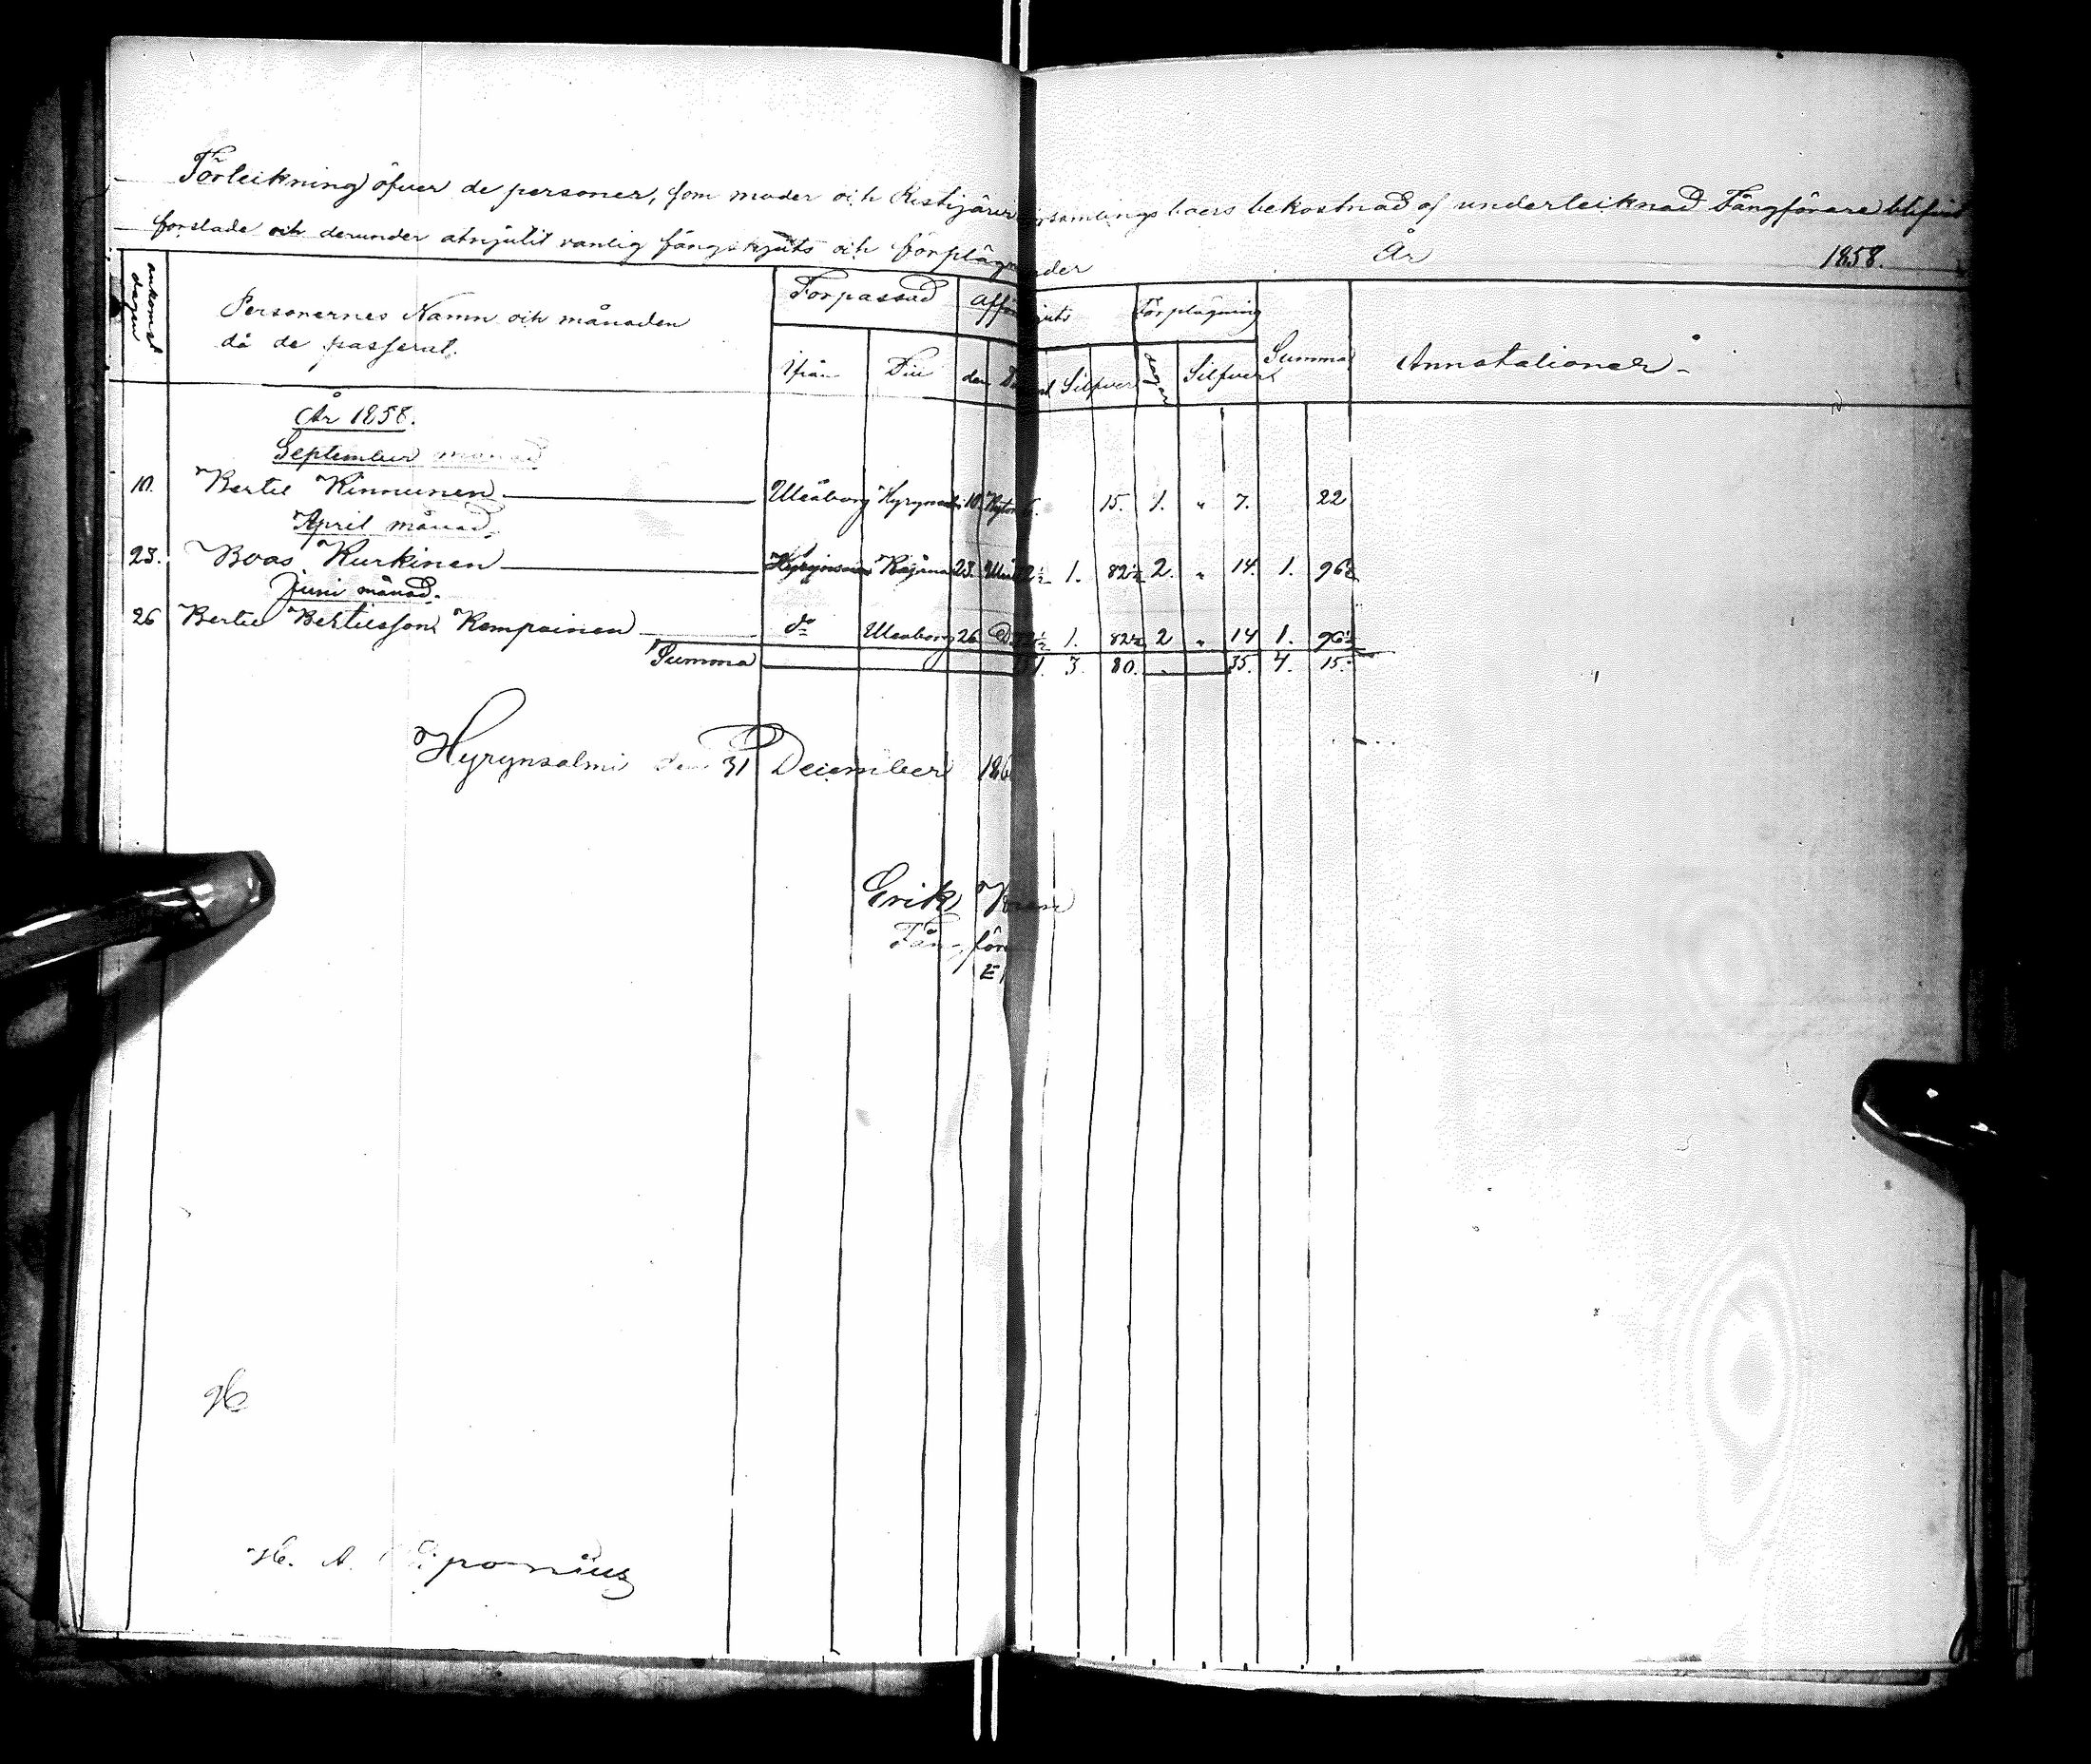 Förteikning öfver de personer, som moder och Ristijärvi församlings boers bekostnad af underteiknad Fångförare blifvit
forslade och derunder atnjutit vanlig fångskjuts och förplägn under År 1858.
ankomst dagen
Personernes Namn och månaden
då de passerat.
Förpassad
Ifrån Till den
Silfver
Förplägning
dagar Silfver
Summa
Annotationer
År 1858.
September månad
10. Bertil Kinnunen Uleåborg Hyrynsalmi 10. 15. 1. " 7. 22
April månad.
23. Boas Kurkinen Hyrynsalmi Kajana 23. 1. 82½ 2. " 14. 1. 96½
Juni månad.
26 Bertil Bertilsson Kemppainen do Uleåborg 26 1. 82½ 2 " 14 1. 96½
Summa 3. 80. 35. 4. 15.
Hyrynsalmi den 31 December
Erik
H. A.